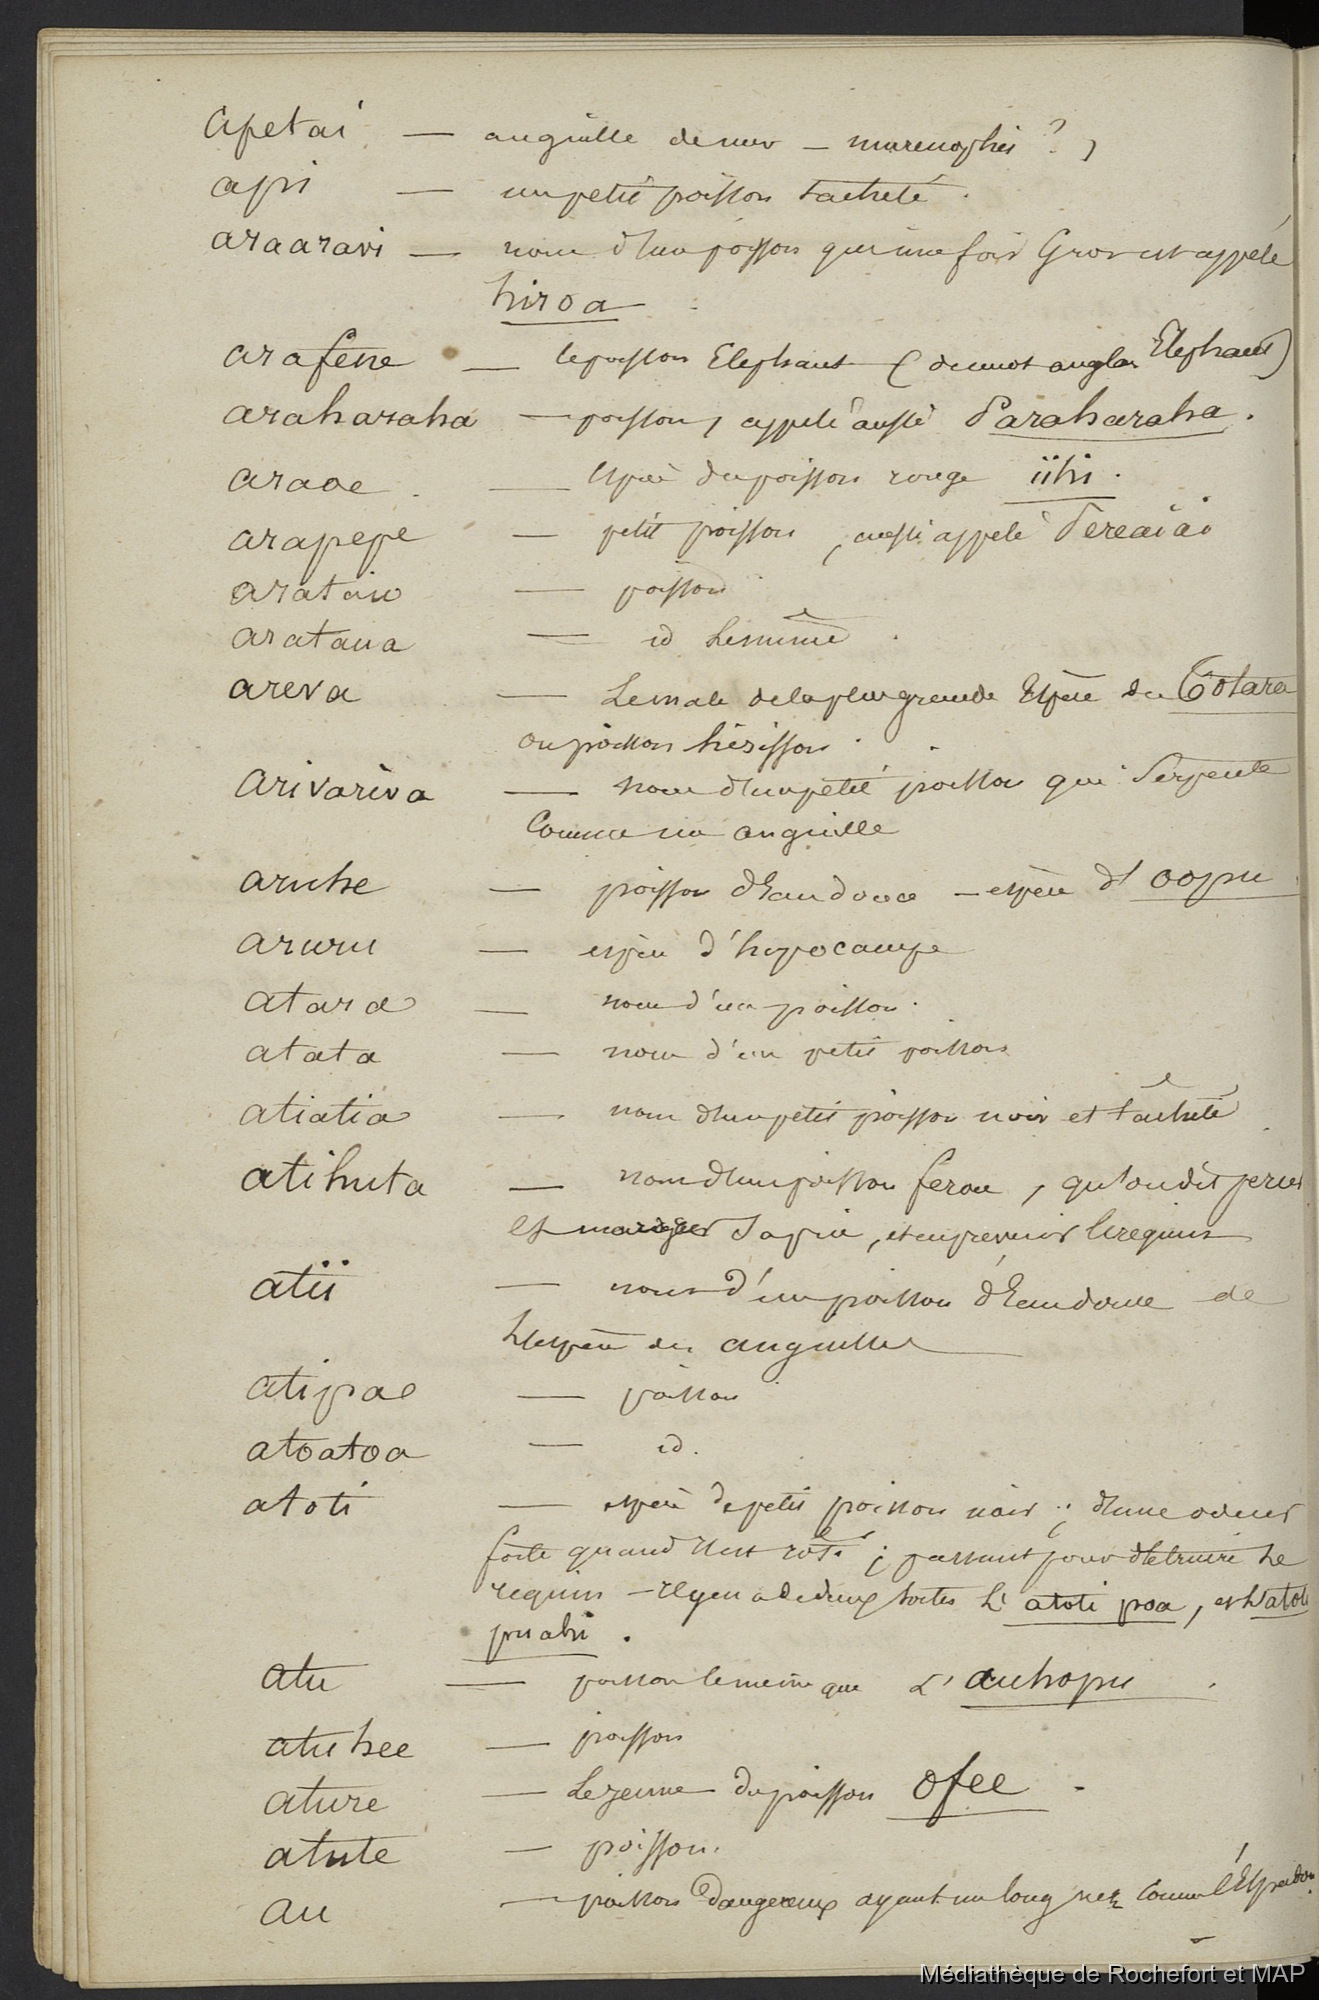 apetai — anguille de mer — murenophis ? ,
api — un petit poisson tacheté .
araaravi — nom d'un poisson qui une fois Gros est appelé
hiroa
arafene — le poisson Elephant (du mot anglais Elephant)
araharaha — poisson, appelé aussi Paraharaha .
araoe — espèce du poisson rouge iihi .
arapepe — petit poisson, aussi appelé Tereaiai
arataio — poisson
arataua — id le même .
areva — Le male de la plus grande Espèce du Totara
ou poisson hérisson .
arivariva — nom d'un petit poisson qui Serpente
Comme un anguille
aruhe — poisson d'Eau douce — espèce d' oopu
aruru — espèce d'hypocampe
atara — nom d'un poisson .
atata — nom d'un petit poisson
atiatia — nom d'un petit poisson noir et tacheté
atihuta — nom d'un poisson féroce, qu'on dit
et manger la pie, et en prevenir le requin
atii — nom d'un poisson d'Eau douce de
l'espèce des anguilles
atipae — poisson
atoatoa — id.
atoti — espèce de petit poisson noir ; d'une odeur
forte quand il est rôti ; passant pour détruire le
requin — Il y en a de deux sortes L' atoti poa, et l'atoti
puahi .
atu — poisson le même que L' auhopu .
atuhee — poisson
ature — Le jeune du poisson Ofee .
atute — poisson.
au — poisson dangereux ayant un long nez Comme l'Espadon.
Médiathèque de Rochefort et MAP